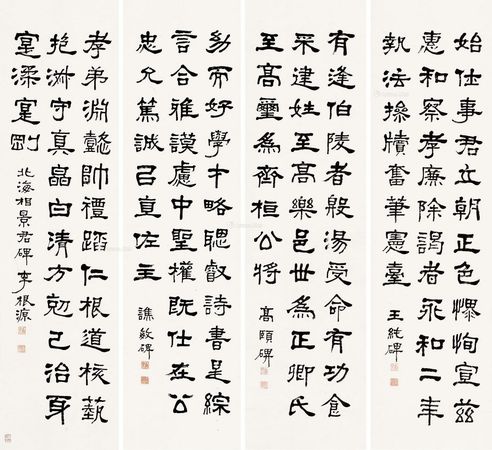 始仕事君立朝正色慓恂宣茲
惠和察孝廉除謁者永和二年
執法操牘奮筆憲臺 王純碑
有逢伯陵者殷湯受命有功食
采建姓至高樂邑世為正卿氏
至高璽為齊桓公將 高頤碑
幼而好學才略聰叡詩書是綜
言合雅謨慮中聖權既仕在公
忠允篤誠㠯直佐主 譙敏碑
孝弟淵懿帥禮蹈仁根道核藝
抱淑守真皛白清方勀己治身
寔渘寔剛 北海相景君碑 李根源